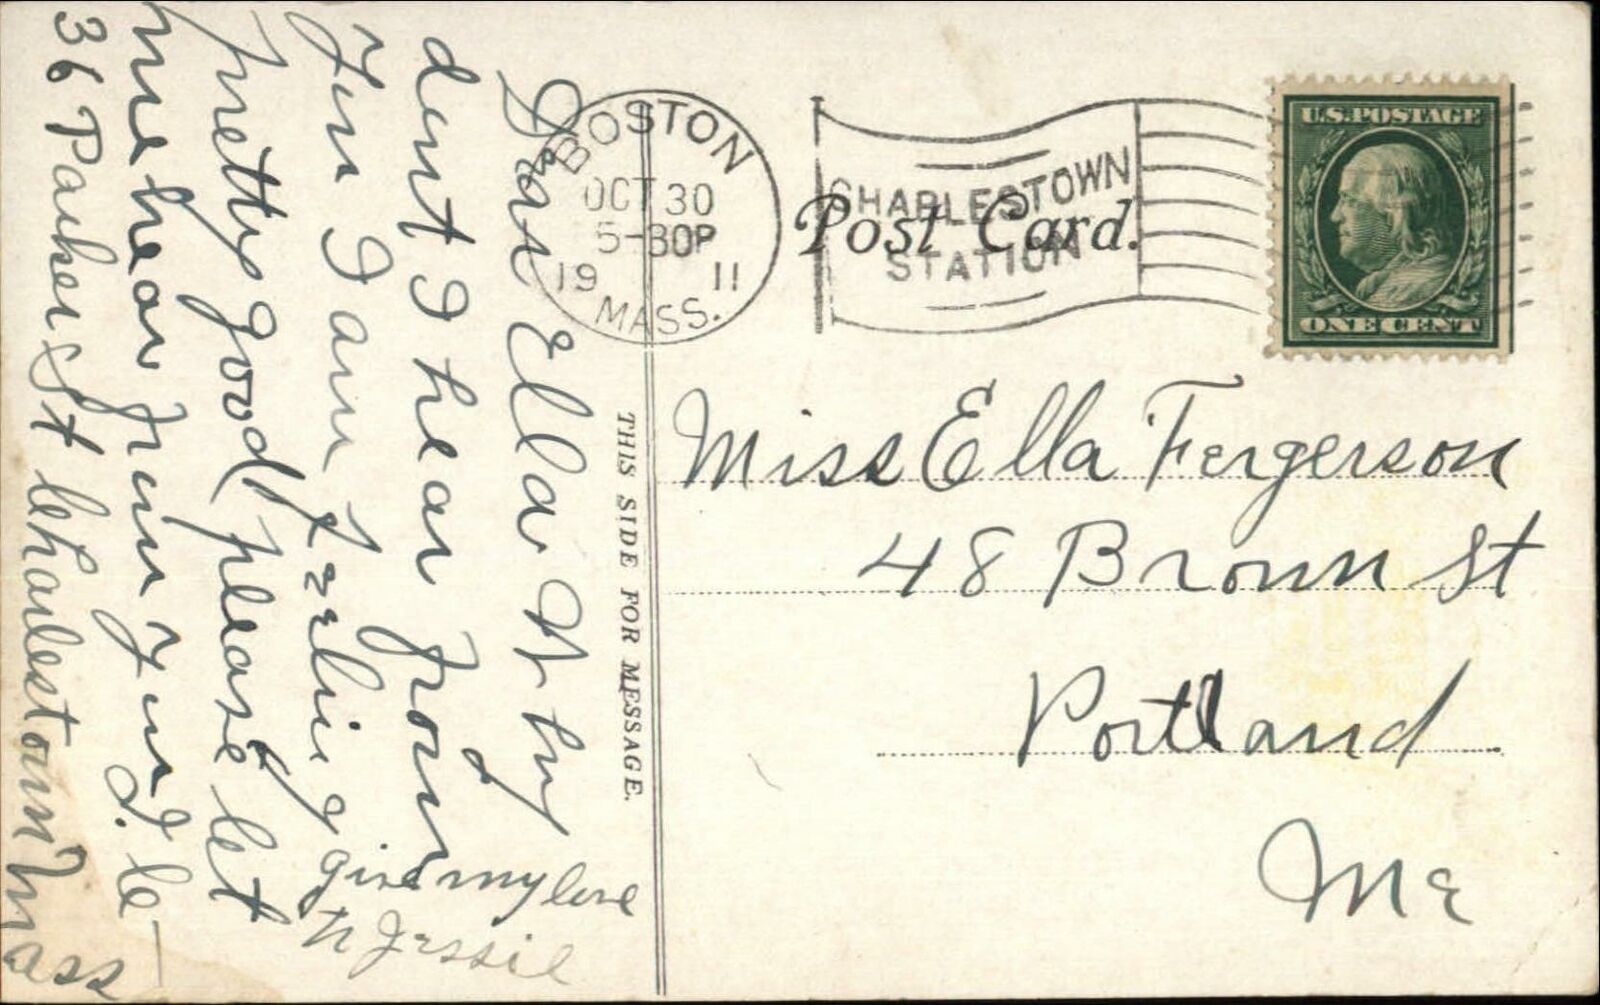 BOSTON
OCT 30
5-30P
19 11
MASS.
CHARLESTOWN
STATION
Post Card.
U.S. POSTAGE
ONE CENT
THIS SIDE FOR MESSAGE.
Miss Ella Fergerson
48 Brown St
Portland
Me
Dear Ella Why
dont I hear from
you I am feeling
pretty good please let
me hear from you. J. C.
36 Parker St Charlestown Mass
give my love
to Jessie